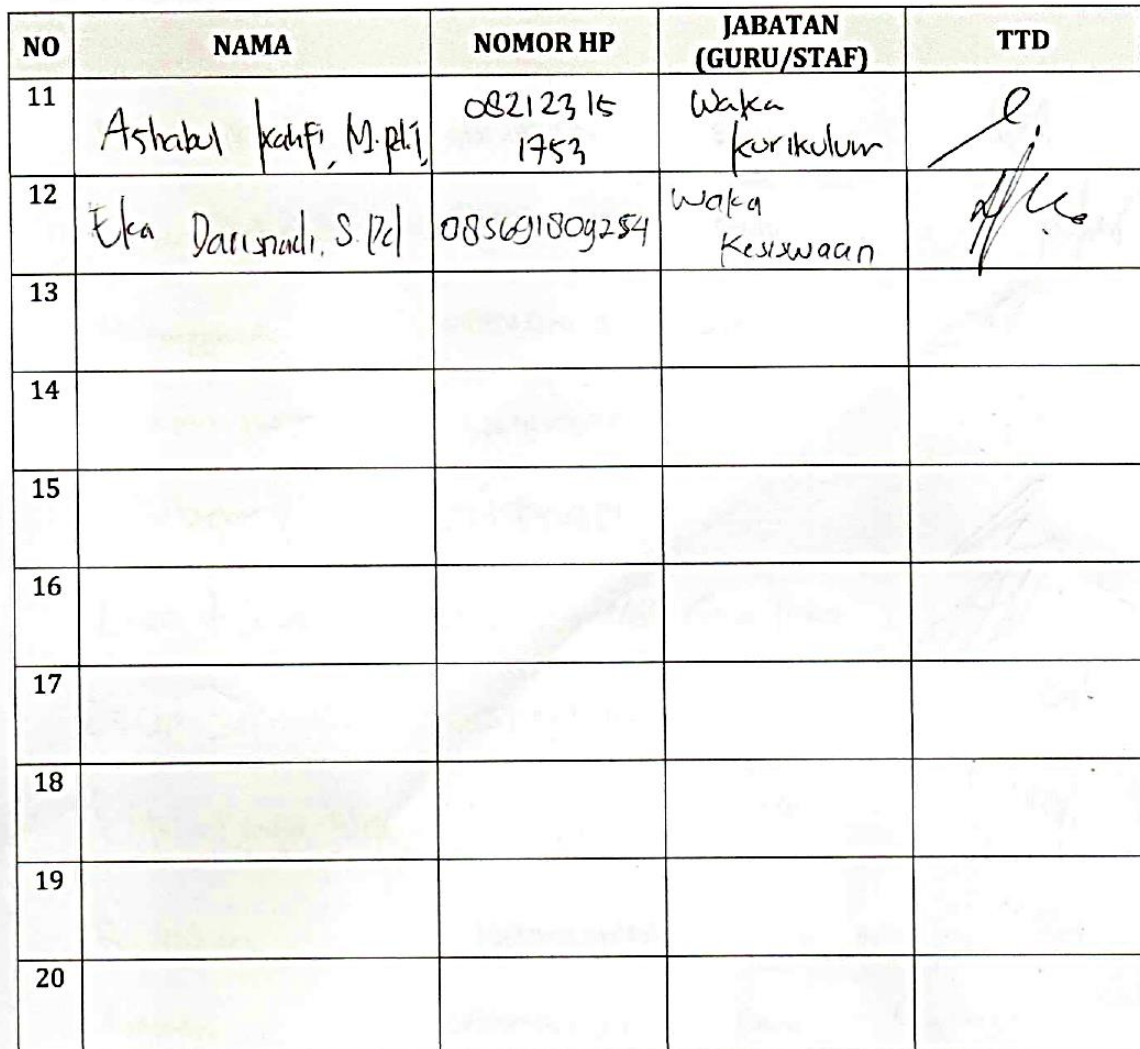 NO NAMA NOMOR HP JABATAN (GURU/STAF) TTD
11 Ashabul Kahfi, M.Pd.I, 08212315 1753 Waka Kurikulum
12 Eka S.Pd 085691809254 Waka Kesiswaan
13
14
15
16
17
18
19
20